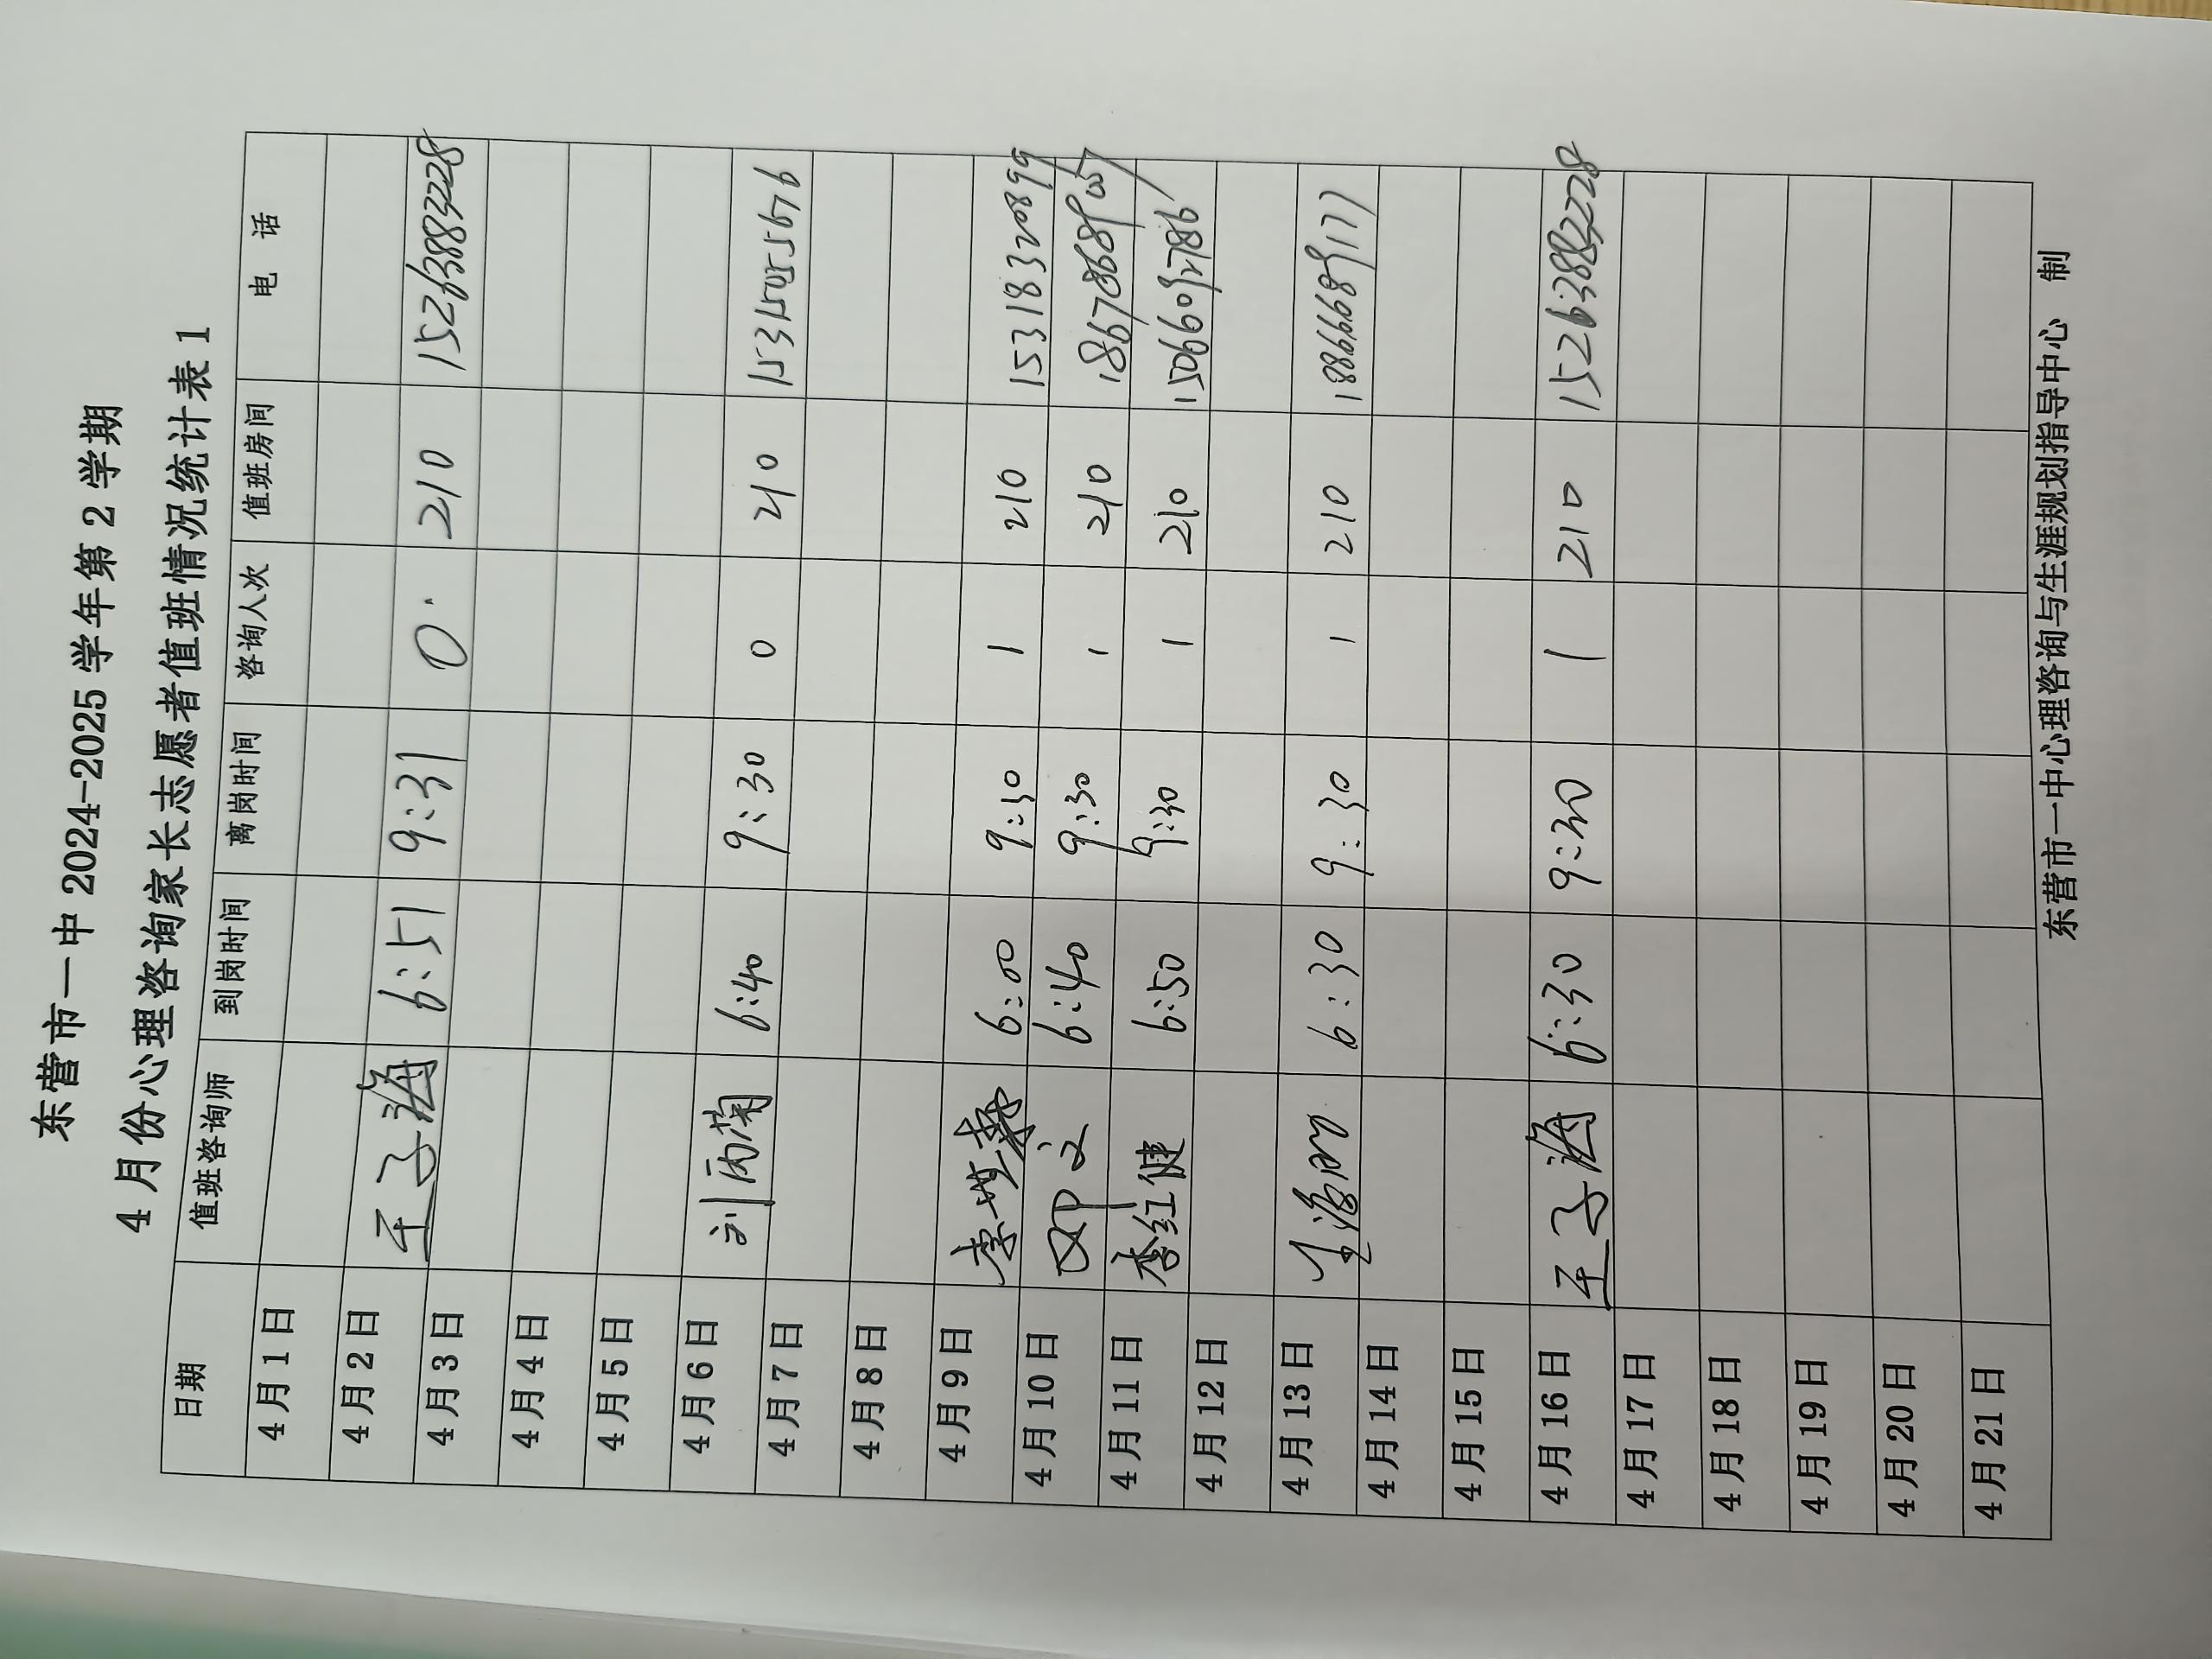 东营市一中 2024-2025 学年第 2 学期
4 月份心理咨询家长志愿者值班情况统计表 1
日期 值班咨询师 到岗时间 离岗时间 咨询人次 值班房间 电 话
4月1日
4月2日 王子海 6:51 9:31 0. 210 15263883228
4月3日
4月4日
4月5日
4月6日 刘丙菊 6:40 9:30 0 210
4月7日
4月8日
4月9日 6:00 9:30 1 210 15318320899
4月10日 6:40 9:30 1 210
4月11日 李红健 6:50 9:30 1 210
4月12日
4月13日 6:30 9:30 1 210
4月14日
4月15日
4月16日 王子海 6:30 9:30 1 210 15263883228
4月17日
4月18日
4月19日
4月20日
4月21日
东营市一中心理咨询与生涯规划指导中心 制